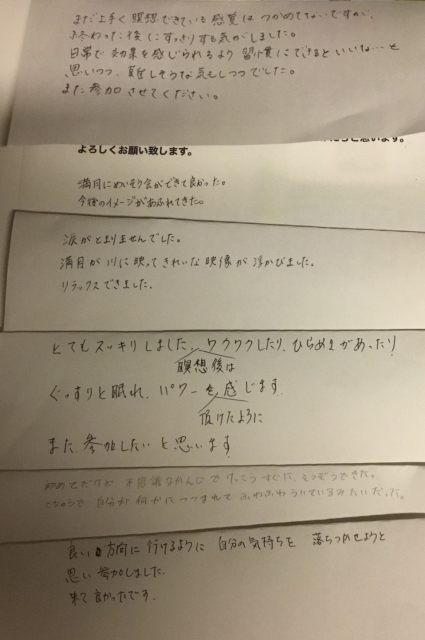 まだ上手く瞑想できている感覚は つかめてないですが、
終わった後にすっきりする気がしました。
日常で効果を感じられるよう 習慣にできるといいな…と
思いつつ、難しそうな気もしつつでした。
また参加させてください。
と思います。
よろしくお願い致します。
満月にめいそう会ができて良かった。
今後のイメージがあふれてきた。
涙がとまりませんでした。
満月が川に映ってきれいな映像が浮かびました。
リラックスできました。
とてもスッキリしました。ワクワクしたり、ひらめきがあったり!
瞑想後は
ぐっすりと眠れ、パワーを感じます。
頂けたように
また、参加したいと思います。
初めてだけど 不思議なかんじで けっこうすぐに、もうそうできた。
とちゅうで 自分が何かに つつまれて ふわふわ ういているみたいだった。
良い方向に行けるように 自分の気持ちを 落ちつかせようと
思い 参加しました。
来て良かったです。